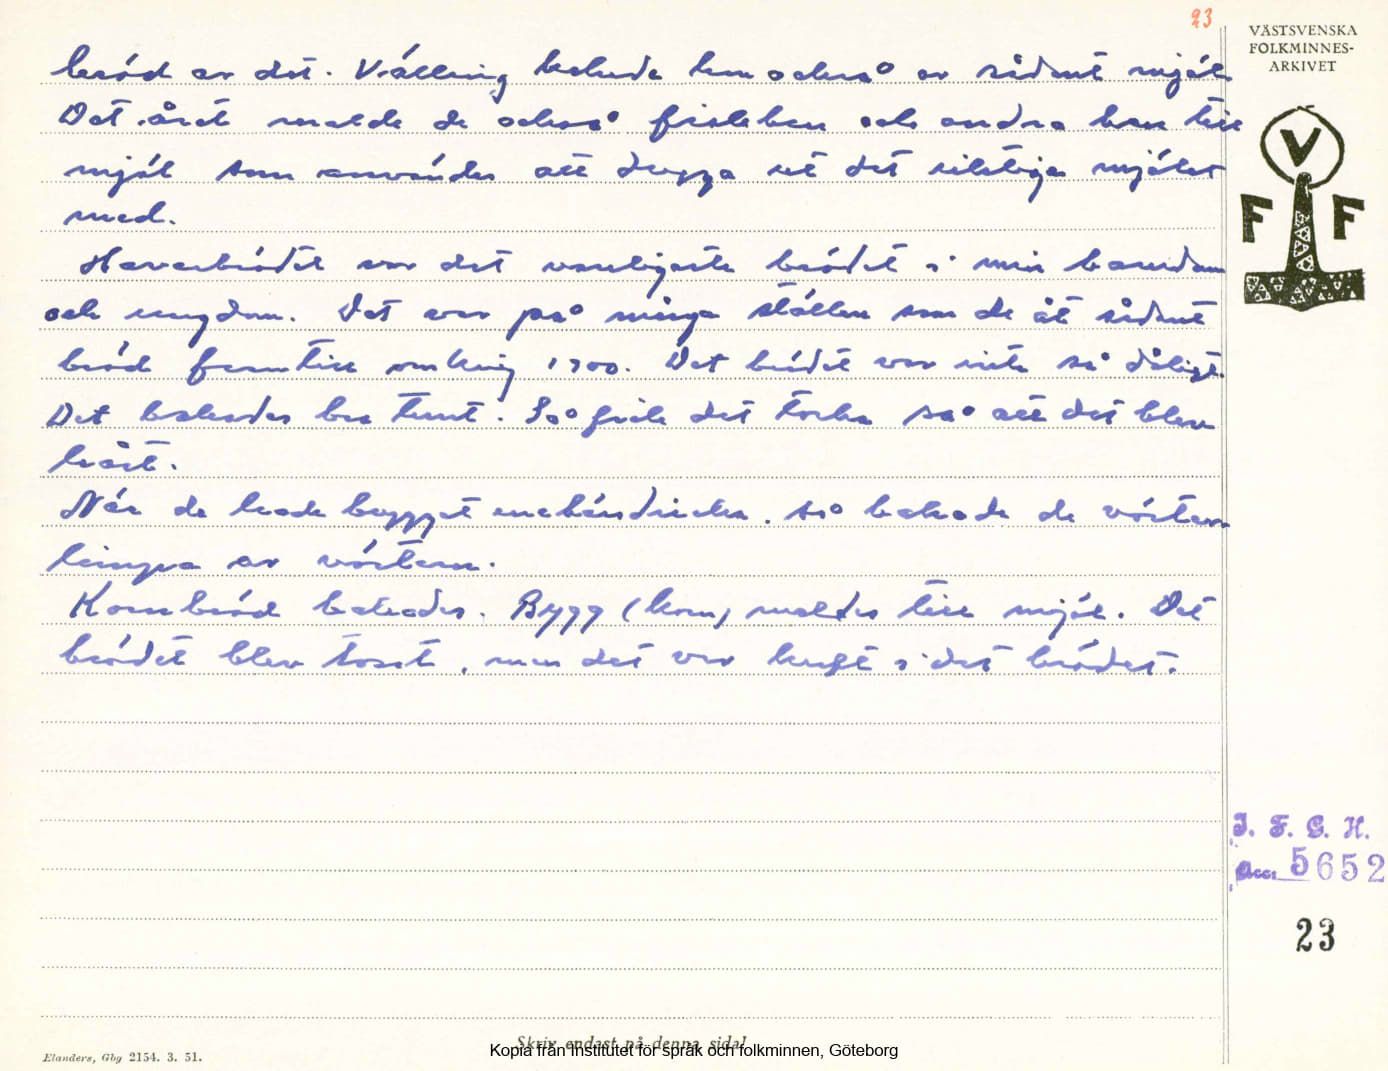 23
VÄSTSVENSKA
FOLKMINNES-
ARKIVET
bröd av det. Välling kokade hon också av sådant mjöl.
Det året malde de också fiskben och andra ben till
mjöl som användes att dryga ut det riktiga mjölet
med.
V
F F
Haverbrödet var det vanligaste brödet i min barndom
och ungdom. Det var på många ställen som de åt sådant
bröd fram till omkring 1900. Det brödet var inte så dåligt.
Det bakades bra tunt. Så fick det torka så att det blev
hårt.
När de hade bryggt enebärsdricka, så bakade de vörtern
av vörtern.
Kornbröd bakades. Bygg (korn) maldes till mjöl. Det
brödet blev torrt, men det var kraft i det brödet.
I. F. G. H.
Acc. 5652
23
Skriv endast på denna sida!
Kopia från Institutet för språk och folkminnen, Göteborg
Elanders, Gbg 2154. 3. 51.